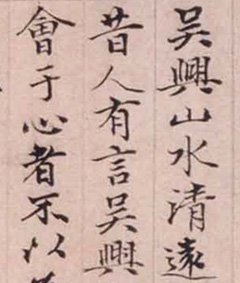 吳興山水清遠
昔人有言吳興
會于心者不以